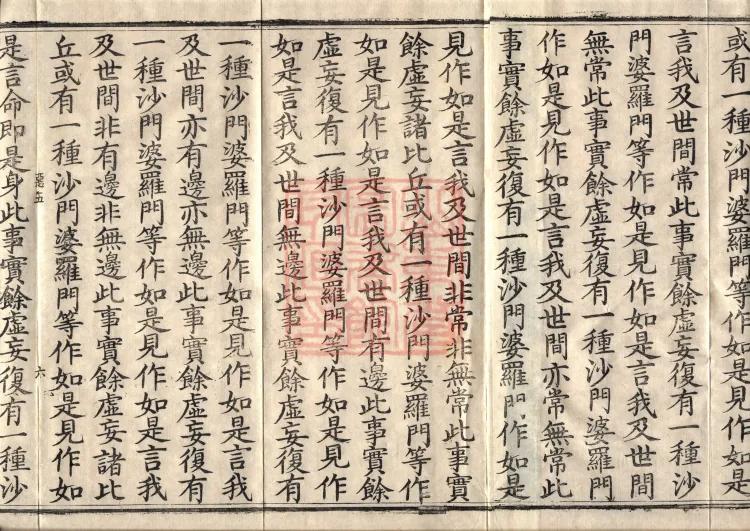 或有一種沙門婆羅門等作如是見作如是
言我及世間常此事實餘虛妄復有一種沙
門婆羅門等作如是見作如是言我及世間
無常此事實餘虛妄復有一種沙門婆羅門
作如是見作如是言我及世間亦常無常此
事實餘虛妄復有一種沙門婆羅門作如是
見作如是言我及世間非常非無常此事實
餘虛妄諸比丘或有一種沙門婆羅門等作
如是見作如是言我及世間有邊此事實餘
虛妄復有一種沙門婆羅門等作如是見作
如是言我及世間無邊此事實餘虛妄復有
一種沙門婆羅門等作如是見作如是言我
及世間亦有邊亦無邊此事實餘虛妄復有
一種沙門婆羅門等作如是見作如是言我
及世間非有邊非無邊此事實餘虛妄諸比
丘或有一種沙門婆羅門等作如是見作如
六
是言命即是身此事實餘虛妄復有一種沙